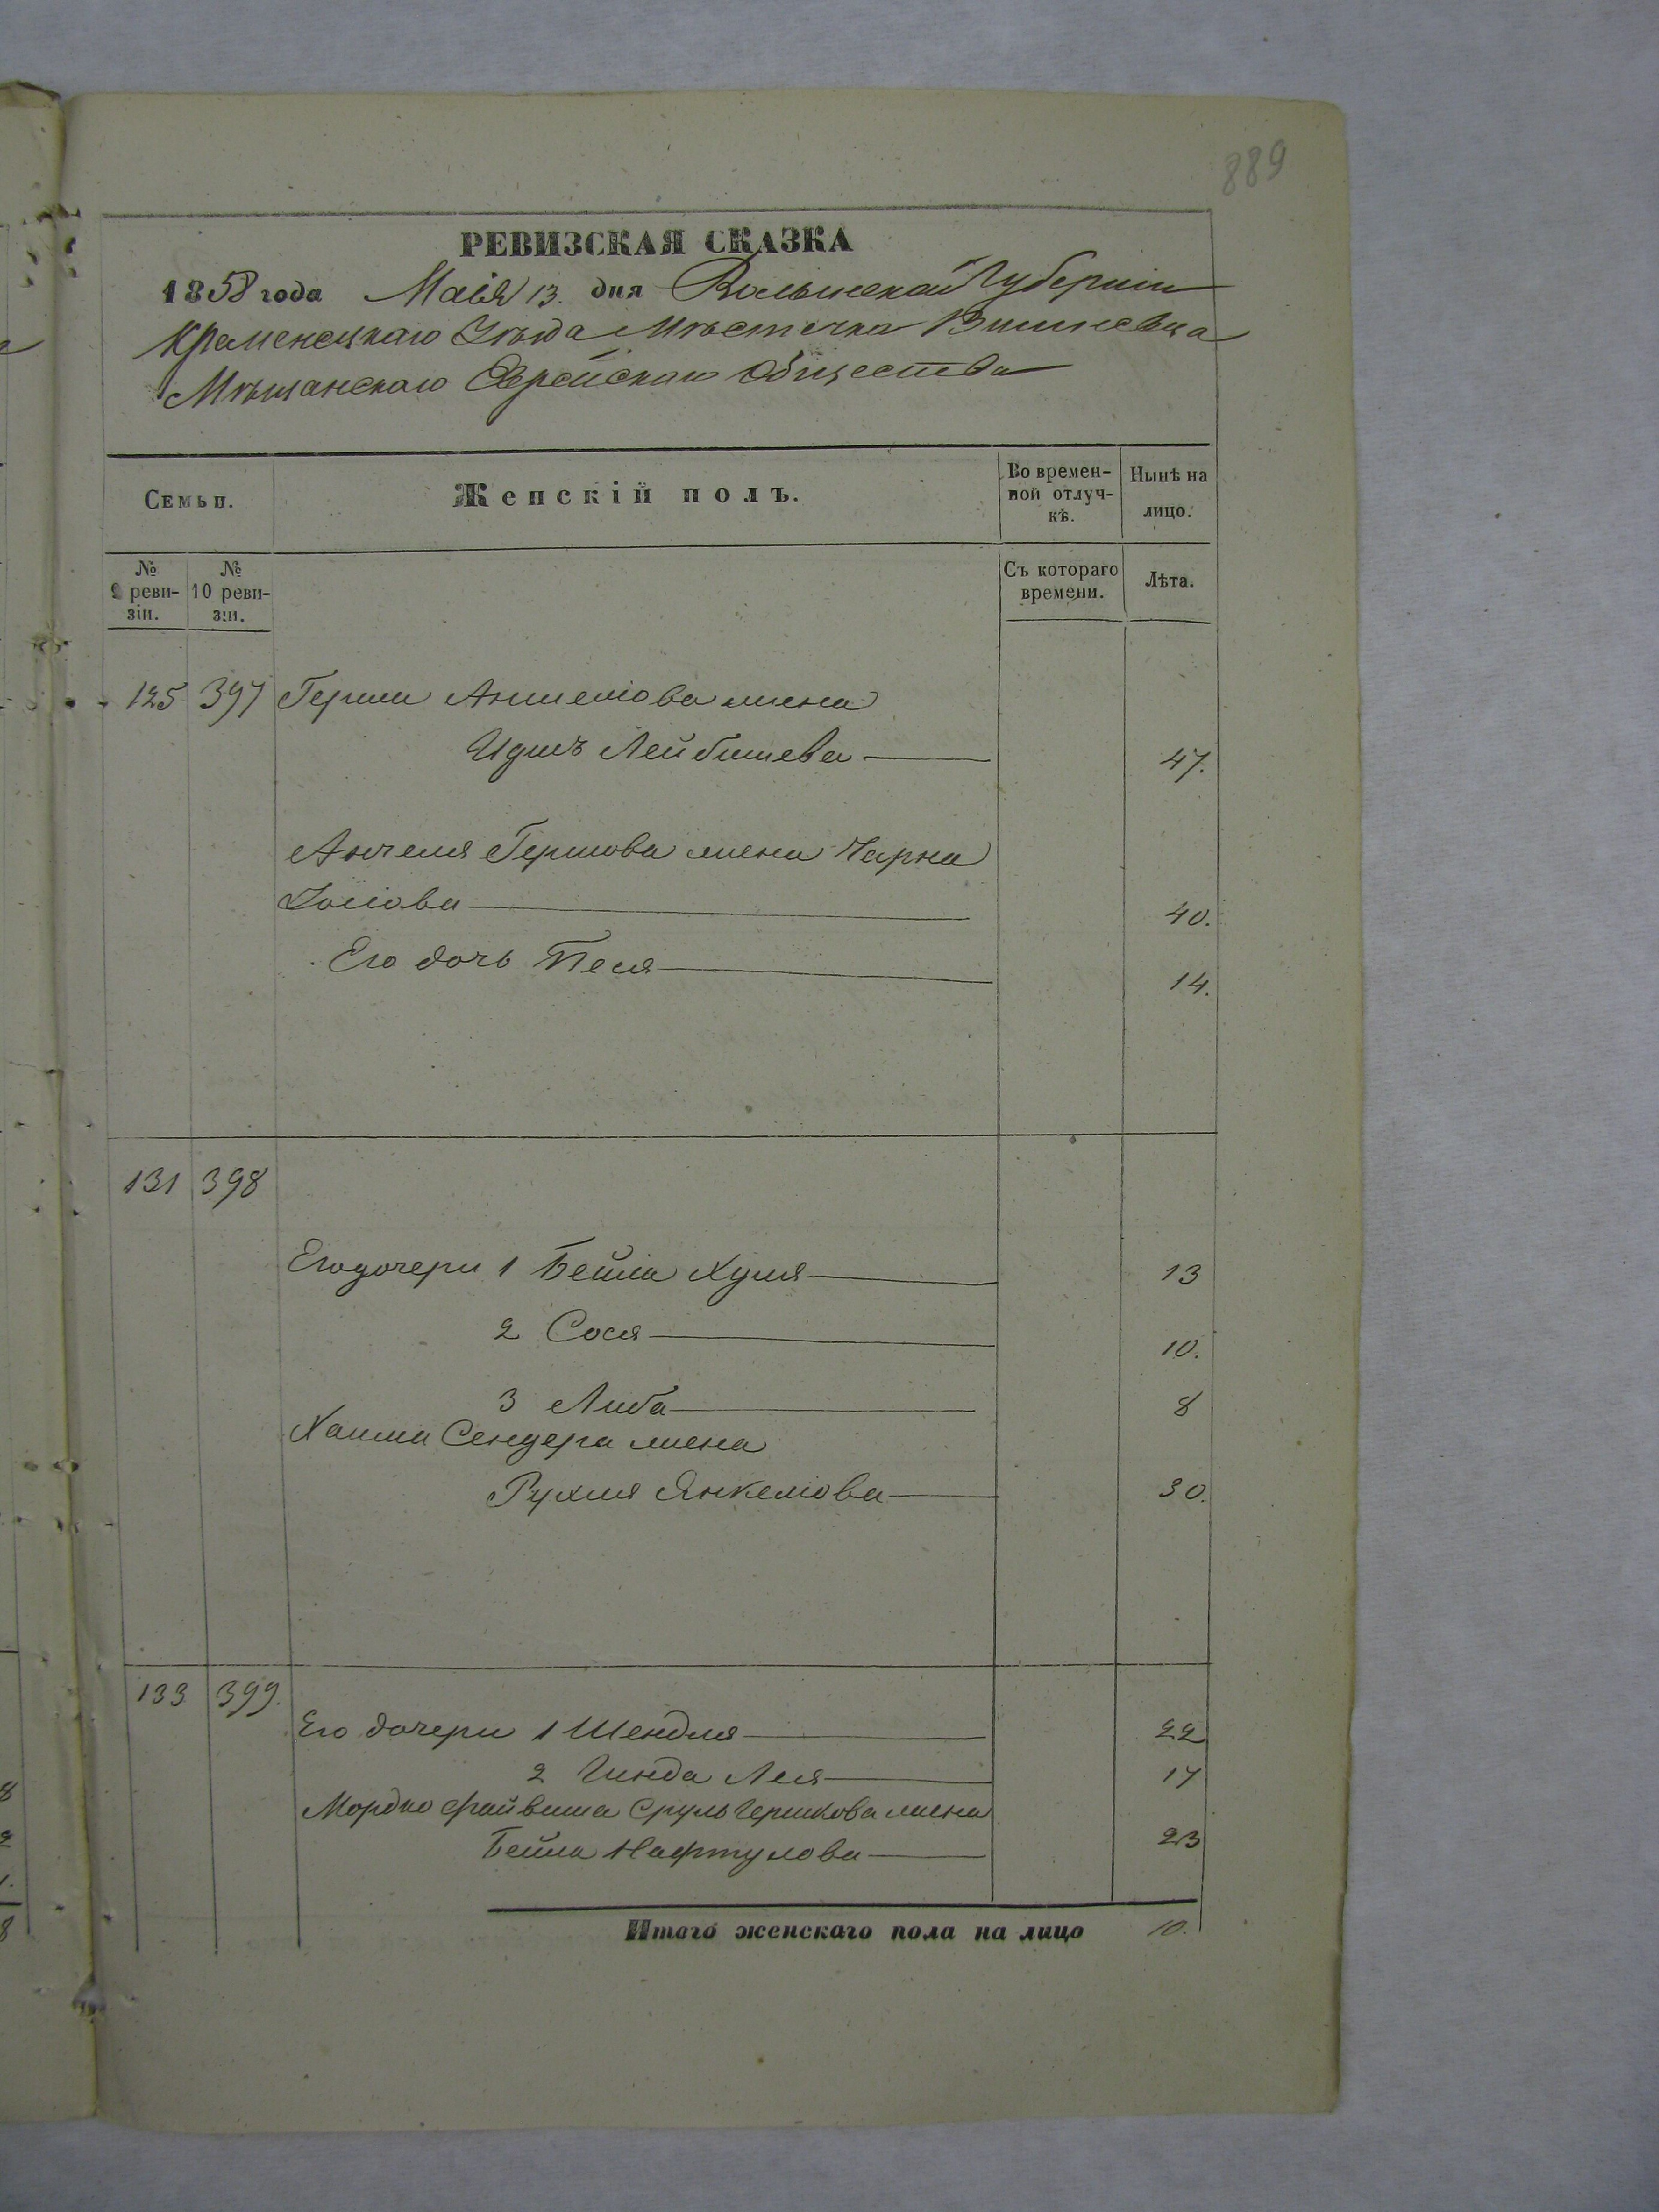 889
РЕВИЗСКАЯ СКАЗКА
1858 года Маія 13. дня Волынской Губерніи
Кременецкаго Уѣзда Мѣстечка Вишневца
Мѣщанскаго Еврейскаго Общества
Семьи.
Женскій полъ.
Во времен-
ной отлуч-
кѣ.
Нынѣ на
лицо.
№
9 реви-
зіи.
№
10 реви-
зіи.
Съ котораго
времени.
Лѣта.
125 397 Герша Аншеліова жена
Идись Лейбишева 47.
Аншеля Гершова жена Чарна
Іосіова 40.
Его дочь Песя 14.
131 398
Его дочери 1 Бейла Хуля 13
2 Сося 10.
3 Либа 8
Хаима Сендера жена
Рухля Янкеліова 30.
133 399.
Его дочери 1 Шендля 22
2 Гинда Лея 17
Мордко Файвиша Сруль Гершкова жена
Бейла Нафтулова 23
Итого женскаго пола на лицо 10.